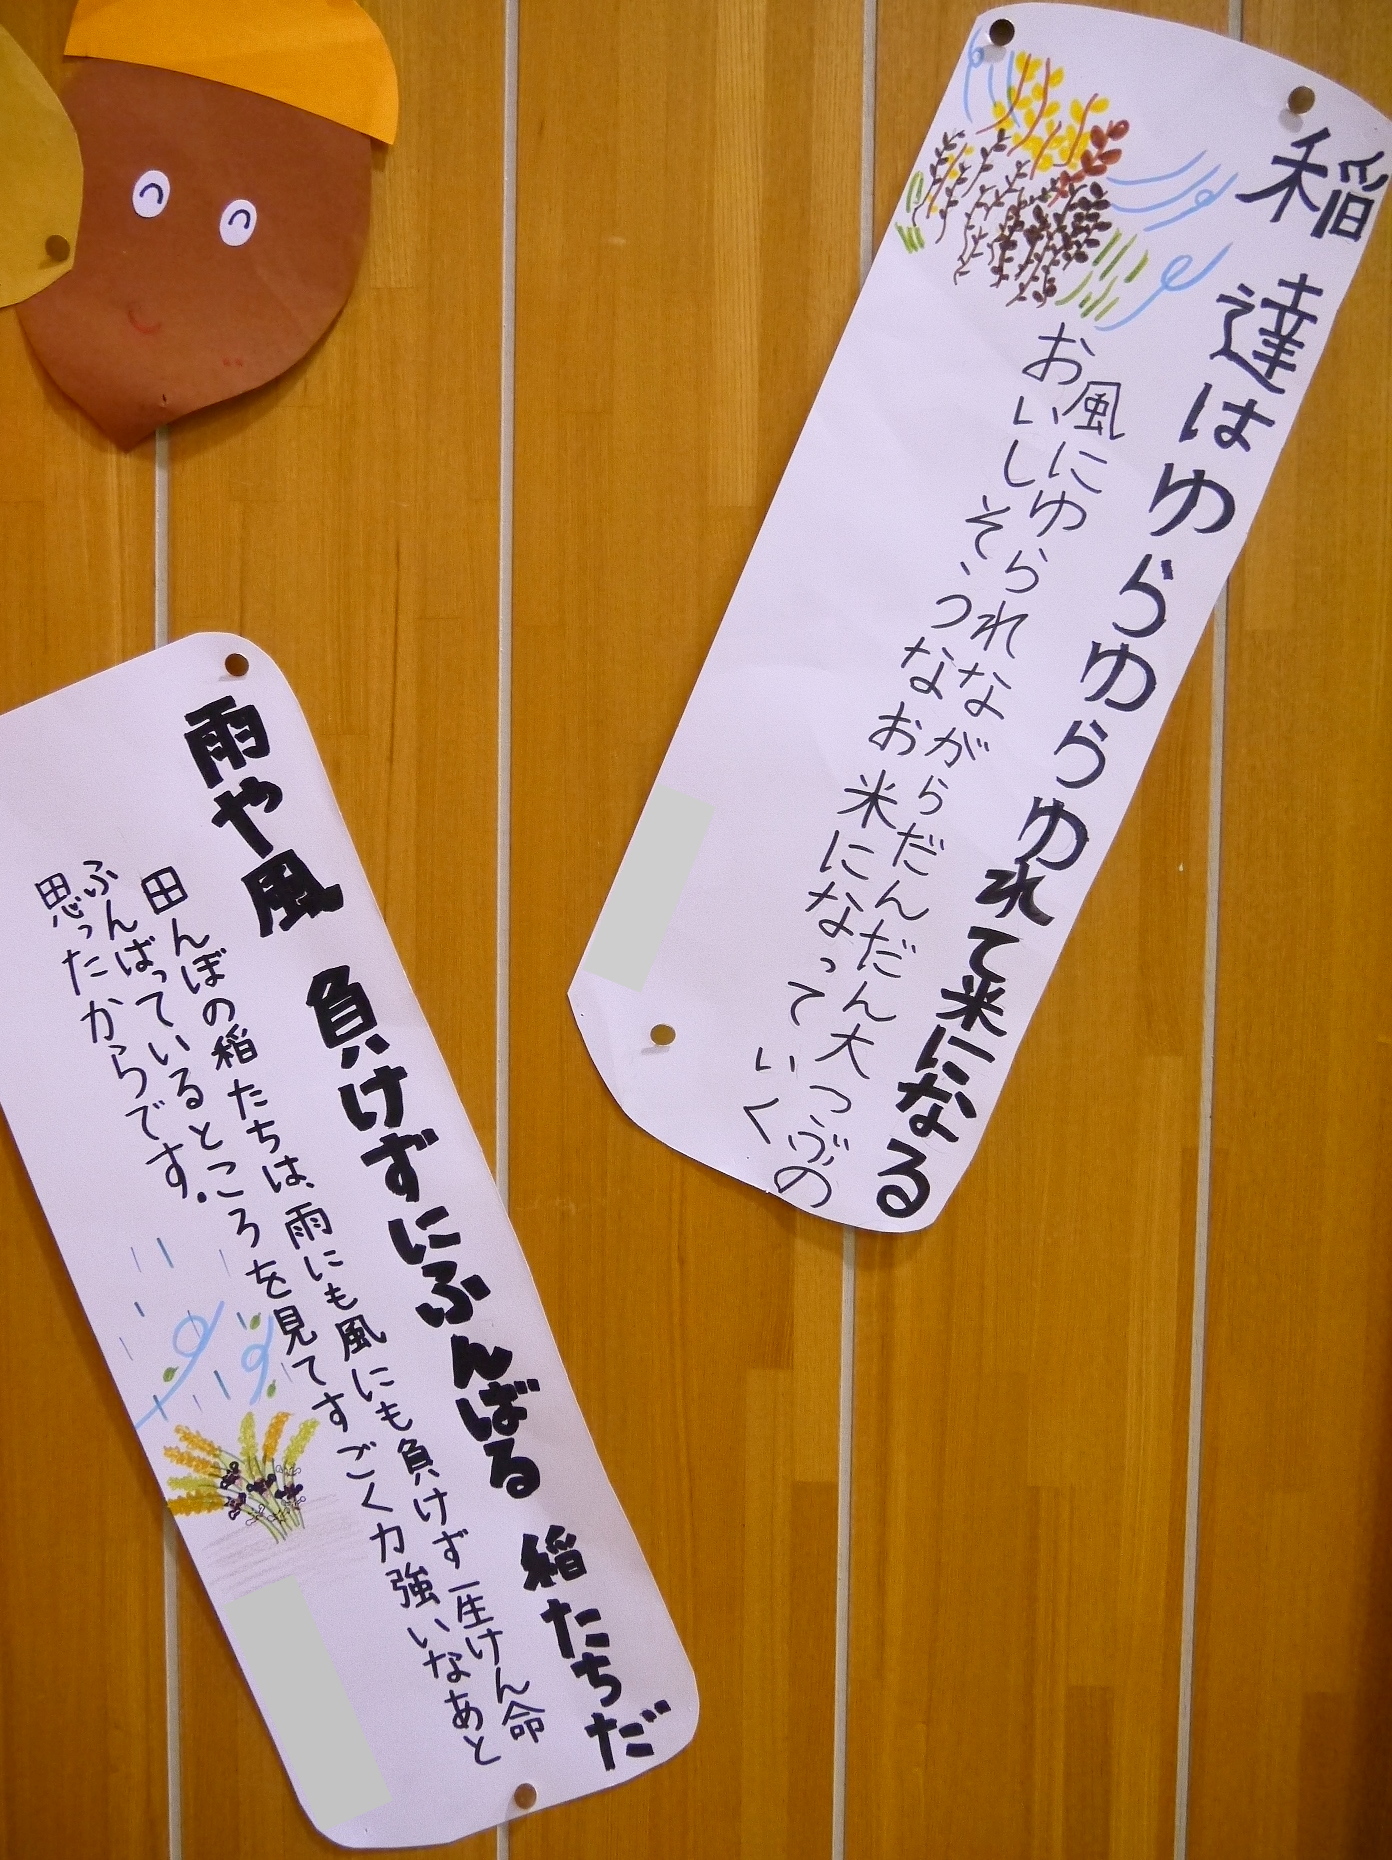 稲達はゆらゆらゆれて米になる
風にゆられながらだんだん大つぶの
おいしそうなお米になっていく
雨や風 負けずにふんばる 稲たちだ
田んぼの稲たちは、雨にも風にも負けず一生けん命
ふんばっているところを見てすごく力強いなあと
思ったからです。